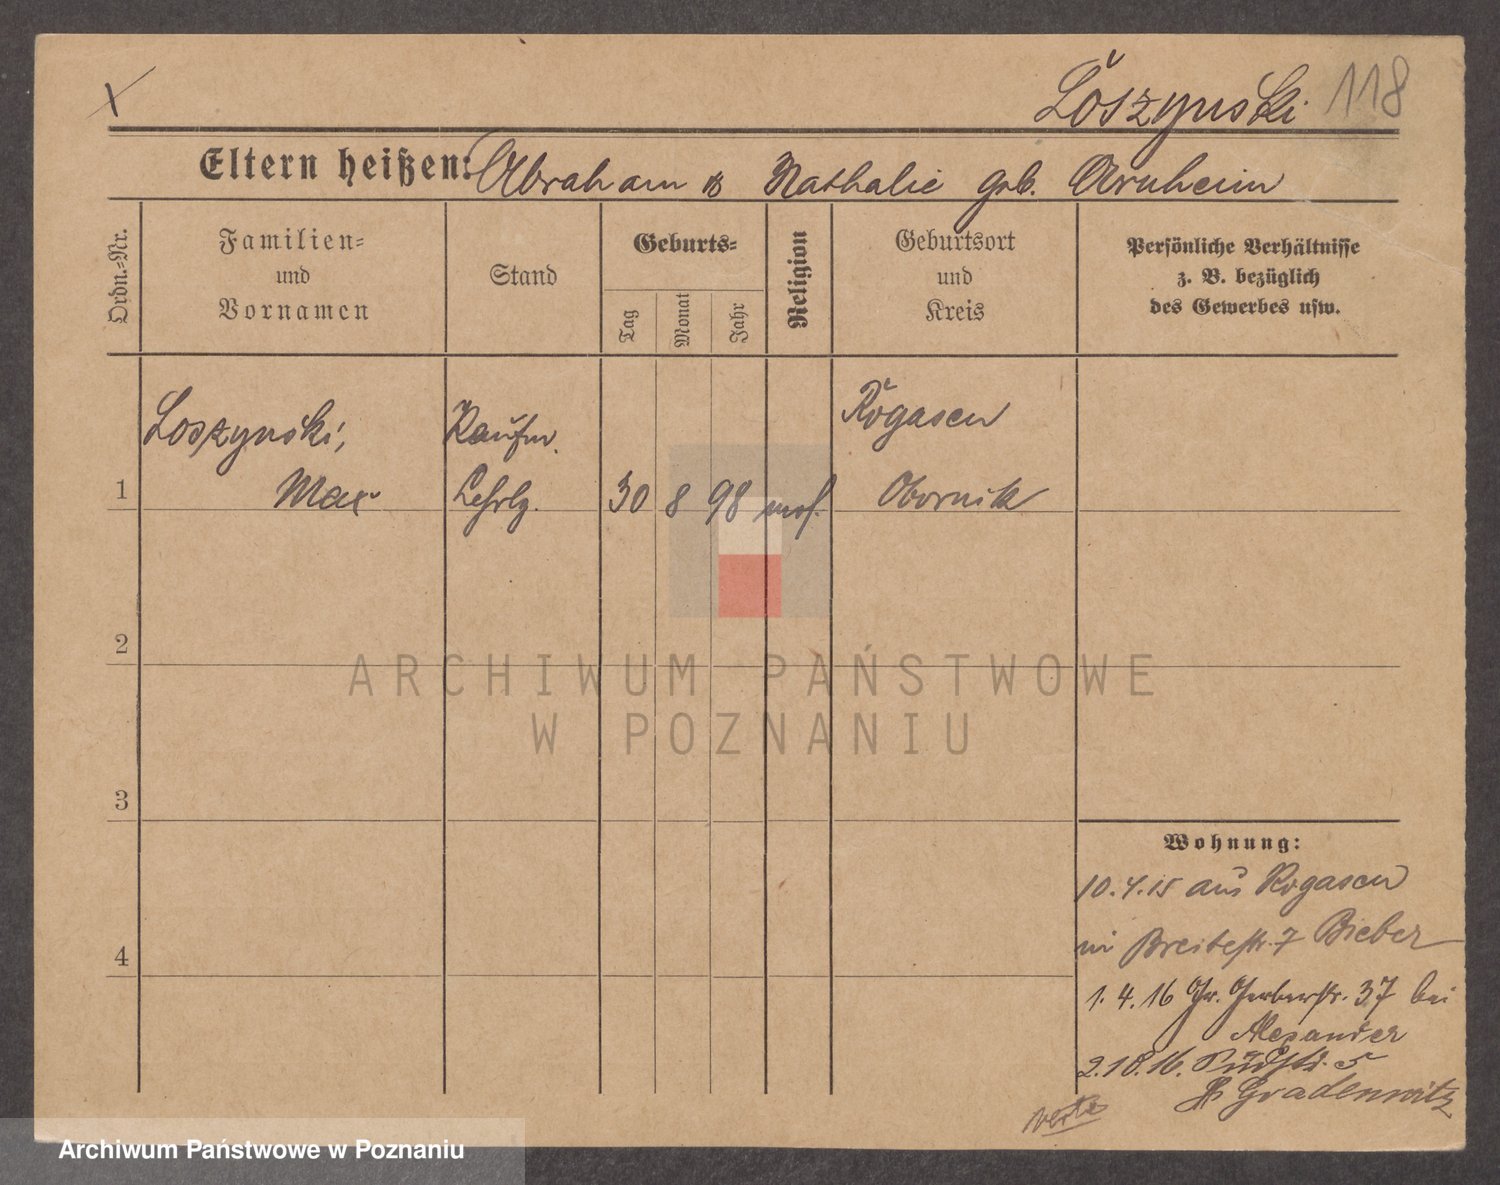 Loszynski 118
Eltern heißen: Abraham & Nathalie geb. Arnheim
Ordn.-Nr.
Familien-
und
Vornamen
Stand
Geburts-
Tag
Monat
Jahr
Religion
Geburtsort
und
Kreis
Persönliche Verhältnisse
z. B. bezüglich
des Gewerbes usw.
Loszynski, Kaufm. Rogasen
1 Max Lehrlg. 30 8 98 mos. Obornik
2
ARCHIWUM PAŃSTWOWE
W POZNANIU
3
4
Wohnung:
10.4.15 aus Rogasen
in Breitestr. 7 Bieber
1.4.16 Gr. Gerberstr. 37 bei
Alexander
2.10.16. 5
Gradenwitz
verte
Archiwum Państwowe w Poznaniu